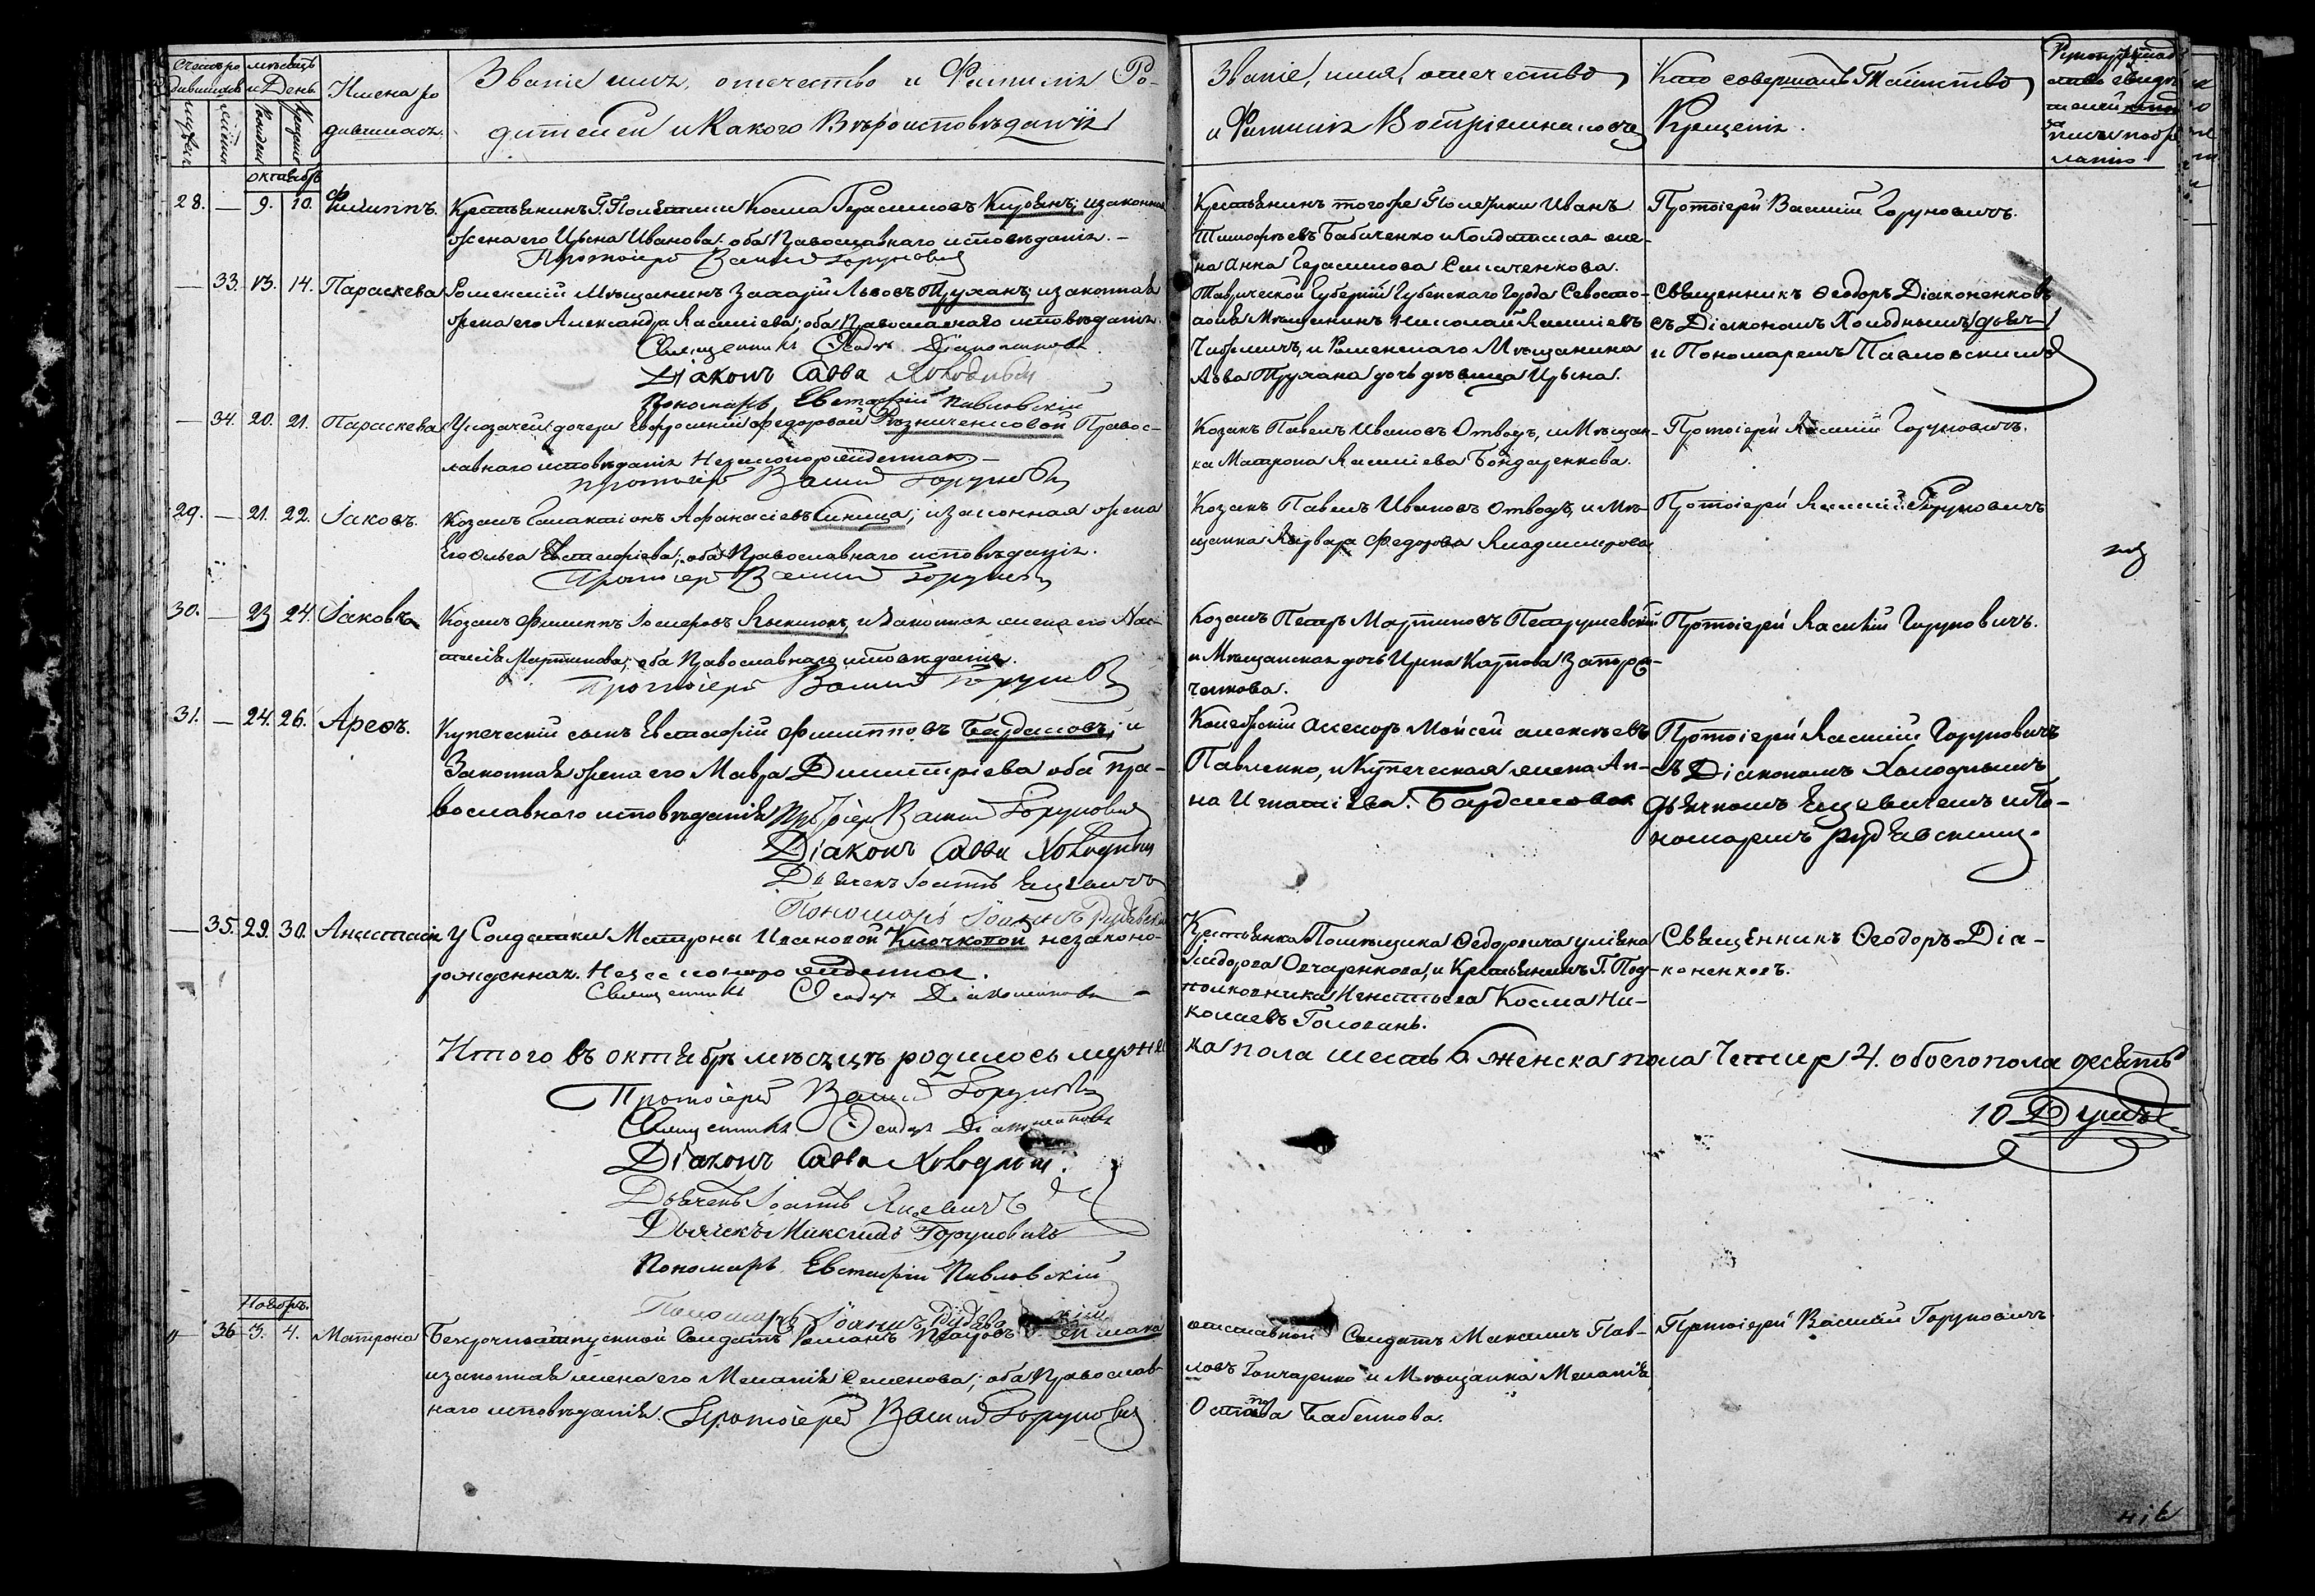 Счетъ ро
дившихся
мѣсяцъ
и День
мужеск
женск
Рожден
Крещен
Имена ро
дившихся.
Званіе имя, отечество и Фамилія Ро-
дителей и Какого Вѣроисповѣданія
Званіе, имя, отечество
и Фамилія Воспріемниковъ
Кто совершалъ Таинство
Крещенія.
октябрь
28. — 9. 10. Филиппъ.
Крестьянинъ Г. Полетики Косма Герасимовъ и законная
жена его Ирина Иванова. оба Православнаго исповѣданія. —
Протоіерей Василій Горуновичъ
Крестьянинъ тогоже Полетики Иванъ
Тимофѣевъ Бабиченко и Солдатская же-
на Анна Герасимова
Протоіерей Василій Горуновичъ.
— 33. 13. 14. Параскева
Роменскій Мѣщанинъ Захарій Львовъ Труханъ; и законная
жена его Александра Василіева; оба Православнаго исповѣданія.
Священникъ Ѳеодоръ Діаконенковъ
Діаконъ Савва Холодный
Пономарь Евстафій Павловскій
Таврической Губерніи Города Севасто-
поля Мѣщанинъ Николай Василіевъ
и Роменскаго Мѣщанина
Льва Трухана дочь дѣвица Ирина.
Священникъ Ѳеодоръ Діаконенковъ
съ Діакономъ Холоднымъ
и Пономаремъ Павловскимъ
— 34. 20. 21. Параскева
У козачей дочери Евфросиніи Федоровой Рѣзниченковой Правос-
лавнаго исповѣданія Незаконорожденная. —
Протоіерей Василій Горуновичъ
Козакъ Павелъ Ивановъ Отводъ, и Мѣщан-
ка Матрона Василіева Бондаренкова.
Протоіерей Василій Горуновичъ.
29. — 21. 22. Іаковъ.
Козакъ Галактіонъ Афанасіевъ Синица; и законная жена
Его Ольга Евстафіева; оба Православнаго исповѣданія.
Протоіерей Василій Горуновичъ
Козакъ Павелъ Ивановъ Отводъ, и Мѣ-
щанка Варвара Федорова Владимирова
Протоіерей Василій Горуновичъ
30. — 23 24. Іаковъ
Козакъ Филиппъ и законная жена его Нас-
тасія Мартинова; оба Православнаго исповѣданія.
Протоіерей Василій Горуновичъ
Козакъ Петръ Мартиновъ Петрушевскій
и Мѣщанская дочь Ирина Карпова
Протоіерей Василій Горуновичъ.
31. — 24. 26. Ареѳъ.
Купеческій сынъ Евстафій Филипповъ Бардаковъ; и
Законная жена его Мавра Димитріева оба Пра-
вославнаго исповѣданія Протоіерей Василій Горуновичъ
Діаконъ Савва Холодный
Дьячекъ Іоаннъ Яцевичъ
Пономарь Іоаннъ Рудіевскій
Колежскій асессоръ Моисей алексѣевъ
Павленко, и Купеческая жена Ан-
на Игнатіева Бардакова
Протоіерей Василій Горуновичъ
съ Діакономъ Холоднымъ
дьячкомъ Яцевичемъ и По-
номаремъ Рудіевскимъ.
— 35. 29. 30. Анастасія
У Солдатки Матроны Ивановой Клочковой незаконо-
рожденная.
Священникъ Ѳеодоръ Діаконенковъ —
Крестьянка Помѣщика Федоровича уліяна
Ѳиодорова Овчаренкова, и Крестьянинъ Г. Под-
полковника Игнатьева Косма Ни-
колаевъ Головань.
Священникъ Ѳеодоръ Діа-
коненковъ.
Итого въ октябрѣ мѣсяцѣ родилось мужес
ка пола шесть 6. женска пола Четыр 4. обоего пола десять
10 Душъ
Протоіерей Василій Горуновичъ
Священникъ Ѳеодоръ Діаконенковъ
Діаконъ Савва Холодный.
Дьячекъ Іоаннъ Яцевичъ
Дьячекъ Максимъ Горуновичъ
Пономарь Евстафій Павловскій
Пономарь Іоаннъ Рудіевскій
Ноябрь.
36 3. 4. Матрона
Безсрочноотпускной Солдатъ Романъ
и законная жена его Меланія Семенова; оба Православ-
наго исповѣданія. Протоіерей Василій Горуновичъ.
отставной Солдатъ Максимъ Пав-
ловъ Гончаренко и Мѣщанка Меланія
Остапова Бабенкова.
Протоіерей Василій Горуновичъ